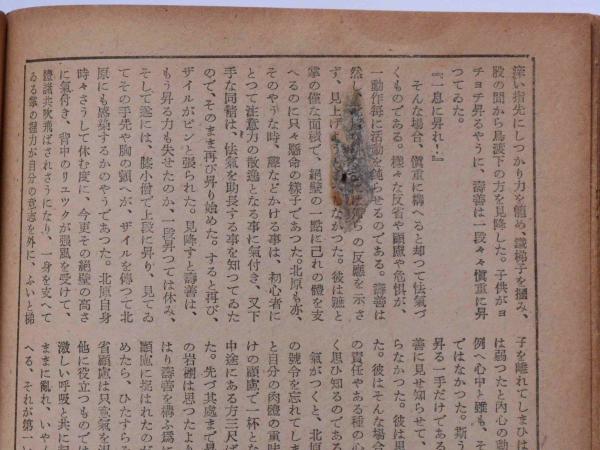 深い指先にしつかり力を籠め、鐵梯子を摑み、
股の間から鳥渡下の方を見降した。子供がヨ
チヨチ昇るやうに、壽善は一段々々愼重に昇
つてゐた。
『一息に昇れ！』
そんな場合、愼重に構へると却つて怯氣づ
くものである。樣々な反省や顧慮や危惧が、
一動作每に活動を鈍らせるのである。壽善は
然し
の反應を示さ
ず、見上げ
なかつた。彼は蹠と
掌の僅な面積で、絕壁の一點に己れの體を支
へるのに只々懸命の樣子であつた。北原も亦、
そのやうな時、聲などかける事は、初心者に
とつて注意力の散逸となる事に氣付き、又下
手な同情は、怯氣を助長する事を知つてゐた
ので、そのまま再び昇り始めた。すると再び、
ザイルがピンと張られた。見降すと壽善は、
もう昇る力も失せたのか、一段昇つては休み、
そして遂には、膝小僧で上段に昇り、見てゐ
てその手先や胸の顫へが、ザイルを傳つて北
原にも感染するかのやうであつた。北原自身
時々さうして休む度に、今更その絕壁の高さ
に氣付き、背中のリユツクが强風を受けて、
諸共吹飛ばされさうになり、一身を支へて
ゐる掌の握力が自分の意志を外に、ふいと梯
子を離れてしまひは
は弱つたと內心の動
例へ心中と雖も、そ
ではなかつた。斯う
昇る一手だけである
善に見せ知らせて、
らなかつた。彼は思
た。彼はそんな場合
の責任やある種の心
く思ひ知るのである
氣がつくと、北原
の號令を忘れてしま
と自分の肉體の重味
けの顧慮で一杯とな
中途にある方三尺ば
た。先づ其處まで昇
の岩棚は思つたより
はり壽善を構ふ爲に
顧慮に攫はれたのが
めたら、ひたすら
省顧慮は只意氣を沮
他に役立つものでは
激しい呼吸と共に
ままに亂れ、いやも
へる、それが第一い